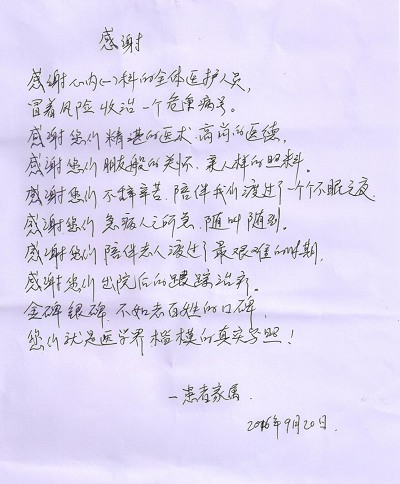 感谢
感谢心内(一)科的全体医护人员,
冒着风险收治一个危重病号。
感谢您们精湛的医术,高尚的医德,
感谢您们朋友般的关怀,亲人样的照料。
感谢您们不辞辛苦,陪伴我们渡过了一个个不眠之夜
感谢您们急病人之所急,随叫随到。
感谢您们陪伴老人渡过了最艰难的时期,
感谢您们出院后的跟踪治疗。
金碑银碑,不如老百姓的口碑,
您们就是医学界楷模的真实写照!
一患者家属.
2016年9月20日.